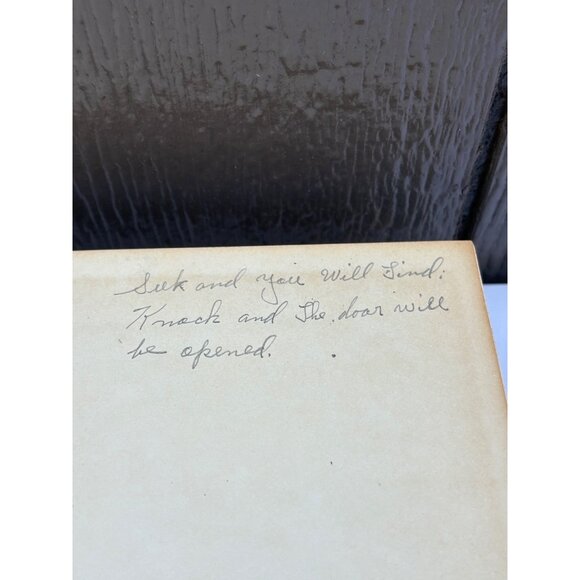 Seek and you Will Find;
Knock and The door will
be opened.